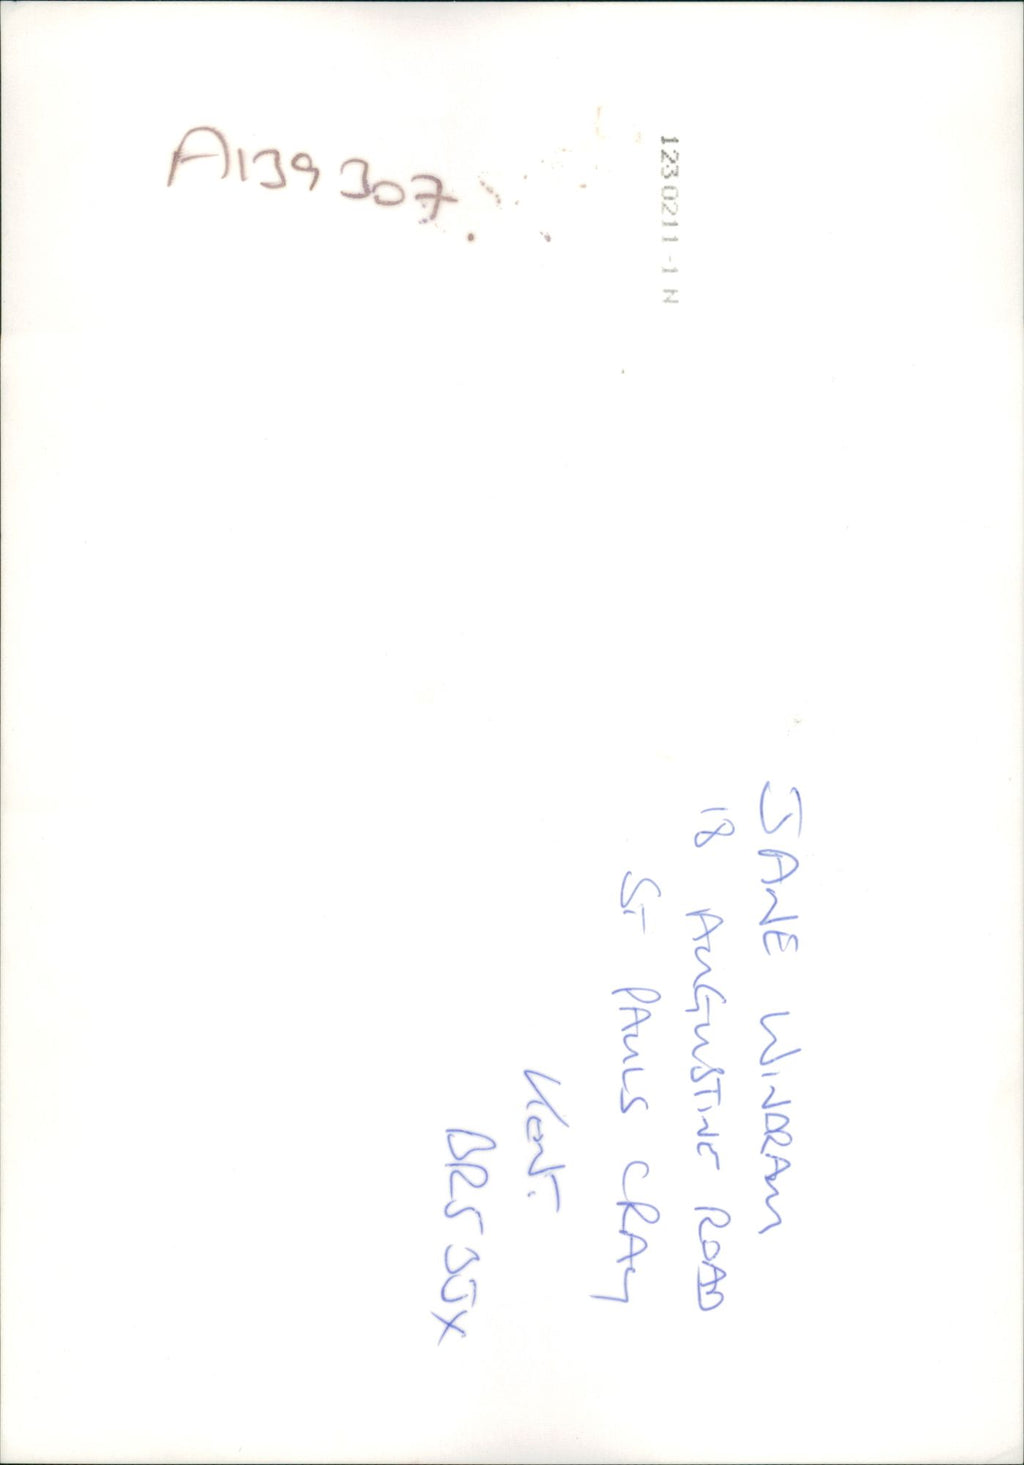 A139307
1230211-1 N
JANE WINDRAM
18 AUGUSTINE ROAD
ST PAULS CRAY
Kent.
BR5 3JX